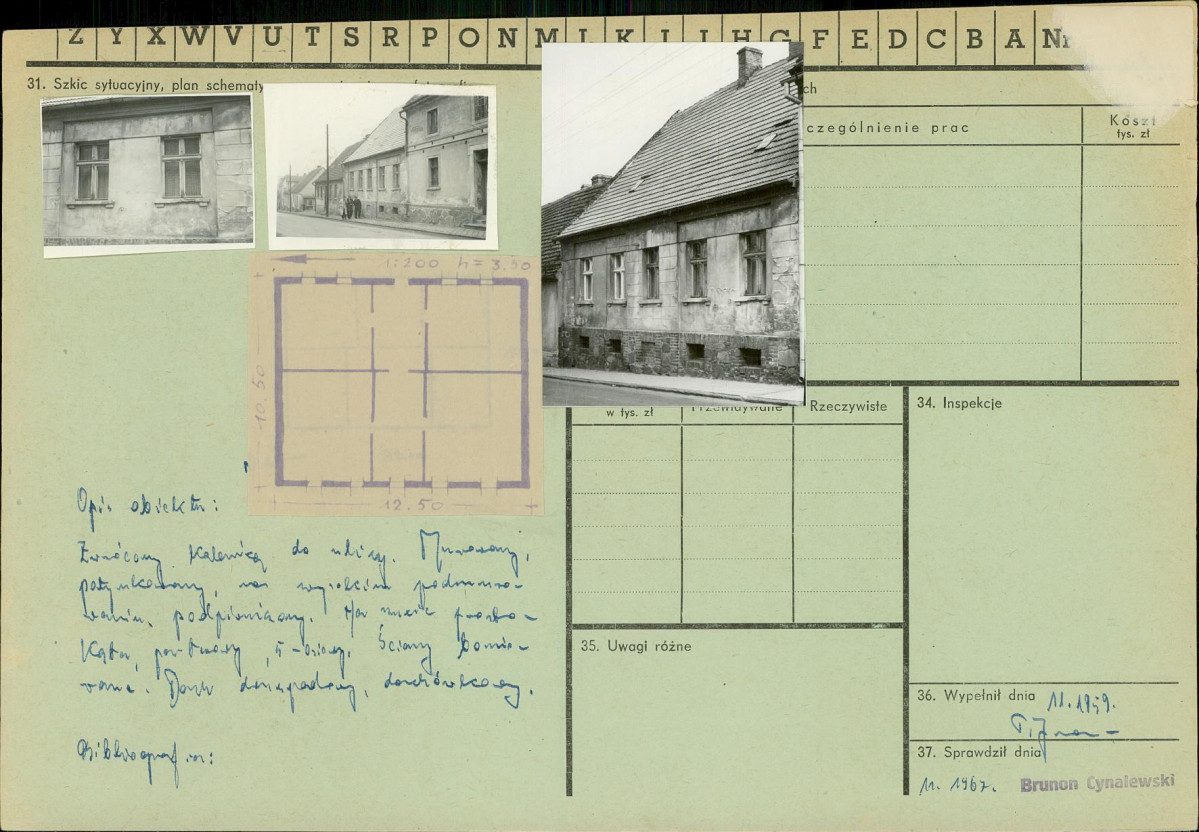 Z Y X W V U T S R P O N M L K J I H G F E D C B A Nr
31. Szkic sytuacyjny, plan schematy
ch
czególnienie prac
Koszt
tys. zł
1:200 h = 3.50
10.50
12.50
w tys. zł
Przewidywane
Rzeczywiste
34. Inspekcje
Opis obiektu:
Zwrócony kalenicą do ulicy. Murowany,
potynkowany, na wysokim podmuro-
waniu, podpiwniczony. Na rzucie prosto-
kąta, parterowy, 5-osiowy. Ściany bonio-
wane. Dach dwuspadowy, dachówkowy.
Bibliografia:
35. Uwagi różne
36. Wypełnił dnia 11.1959.
37. Sprawdził dnia
11. 1967. Brunon Cynalewski